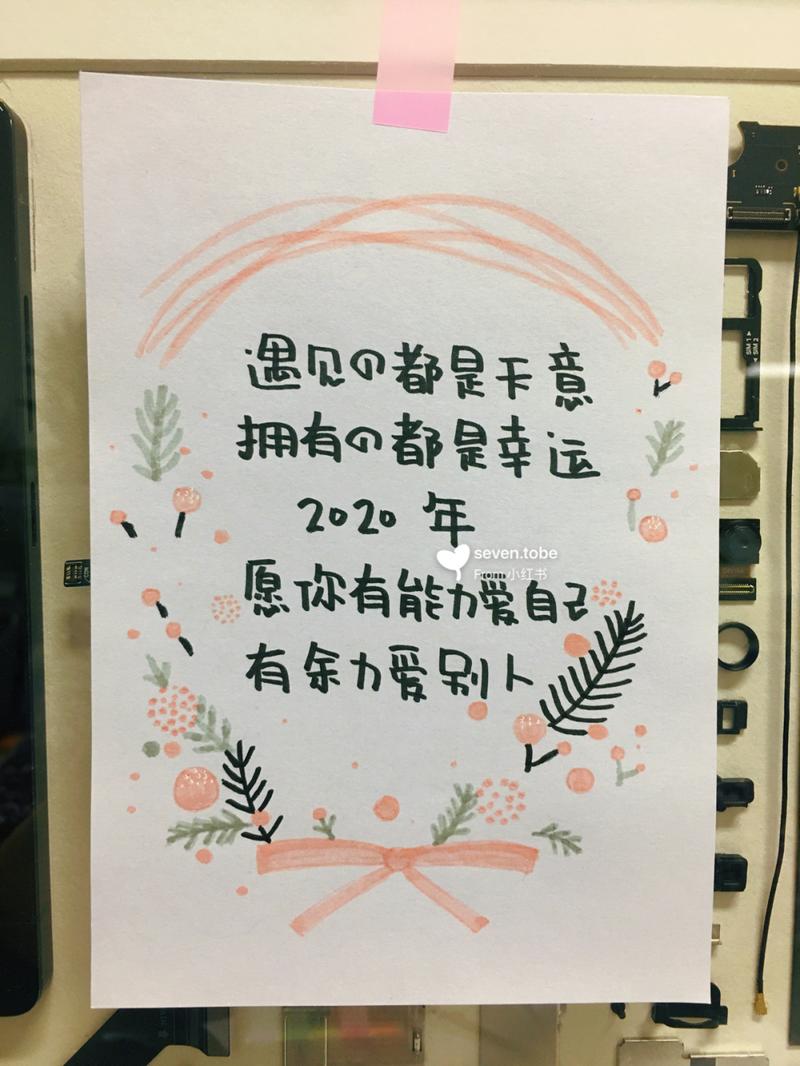 遇见の都是天意
拥有の都是幸运
2020年
愿你有能力爱自己
有余力爱别人
seven.tobe
From 小红书
SIM 1
SIM 2